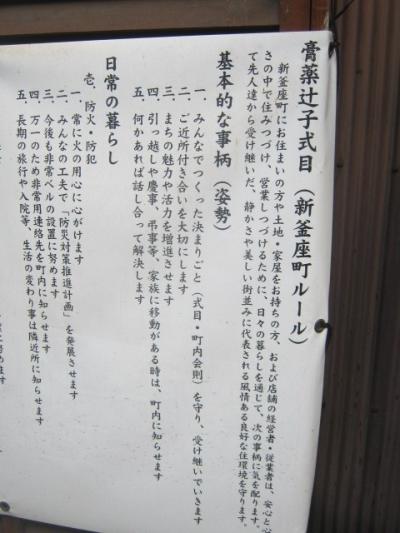 膏薬辻子式目（新釜座町ルール）
新釜座町にお住まいの方や土地・家屋をお持ちの方、および店舗の経営者・従業者は、安心と心
さの中で住みつづけ、営業しつづけるために、日々の暮らしを通じて、次の事柄に気を配ります。
て先人達から受け継いだ、静かさや美しい街並みに代表される風情ある良好な住環境を守ります。
基本的な事柄（姿勢）
一、みんなでつくった決まりごと（式目・町内会則）を守り、受け継いでいきます
二、ご近所付き合いを大切にします
三、まちの魅力や活力を増進させます
四、引っ越しや慶事、弔事等、家族に移動がある時は、町内に知らせます
五、何かあれば話し合って解決します
日常の暮らし
壱．防火・防犯
一、常に火の用心に心がけます
二、みんなの工夫で「防災対策推進計画」を発展させます
三、今後も非常ベルの設置に努めます
四、万一のため非常用連絡先を町内に知らせます
五、長期の旅行や入院等、生活の変わり事は隣近所に知らせます